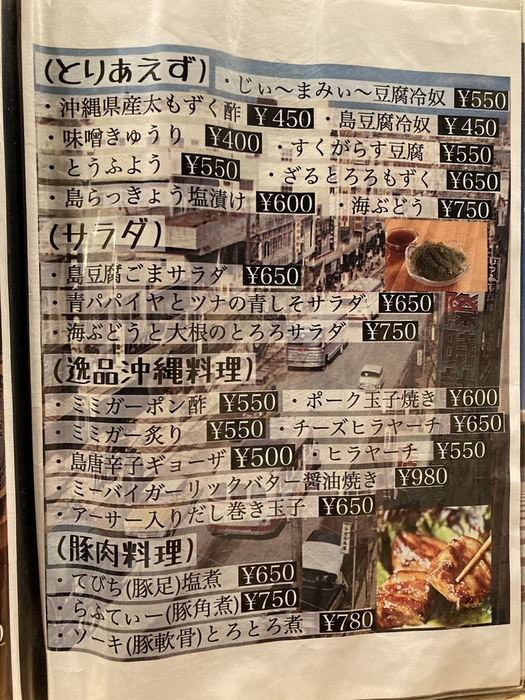 (とりあえず)
・じぃ～まみぃ～豆腐冷奴 ¥550
・沖縄県産太もずく酢 ¥450 ・島豆腐冷奴 ¥450
・味噌きゅうり ¥400 ・すくがらす豆腐 ¥550
・とうふよう ¥550 ・ざるとろろもずく ¥650
・島らっきょう塩漬け ¥600 ・海ぶどう ¥750
(サラダ)
・島豆腐ごまサラダ ¥650
・青パパイヤとツナの青しそサラダ ¥650
・海ぶどうと大根のとろろサラダ ¥750
(逸品沖縄料理)
・ミミガーポン酢 ¥550 ・ポーク玉子焼き ¥600
・ミミガー炙り ¥550 ・チーズヒラヤーチ ¥650
・島唐辛子ギョーザ ¥500 ・ヒラヤーチ ¥550
・ミーバイガーリックバター醤油焼き ¥980
・アーサー入りだし巻き玉子 ¥650
(豚肉料理)
・てびち(豚足)塩煮 ¥650
・らふてぃー(豚角煮) ¥750
・ソーキ(豚軟骨)とろとろ煮 ¥780